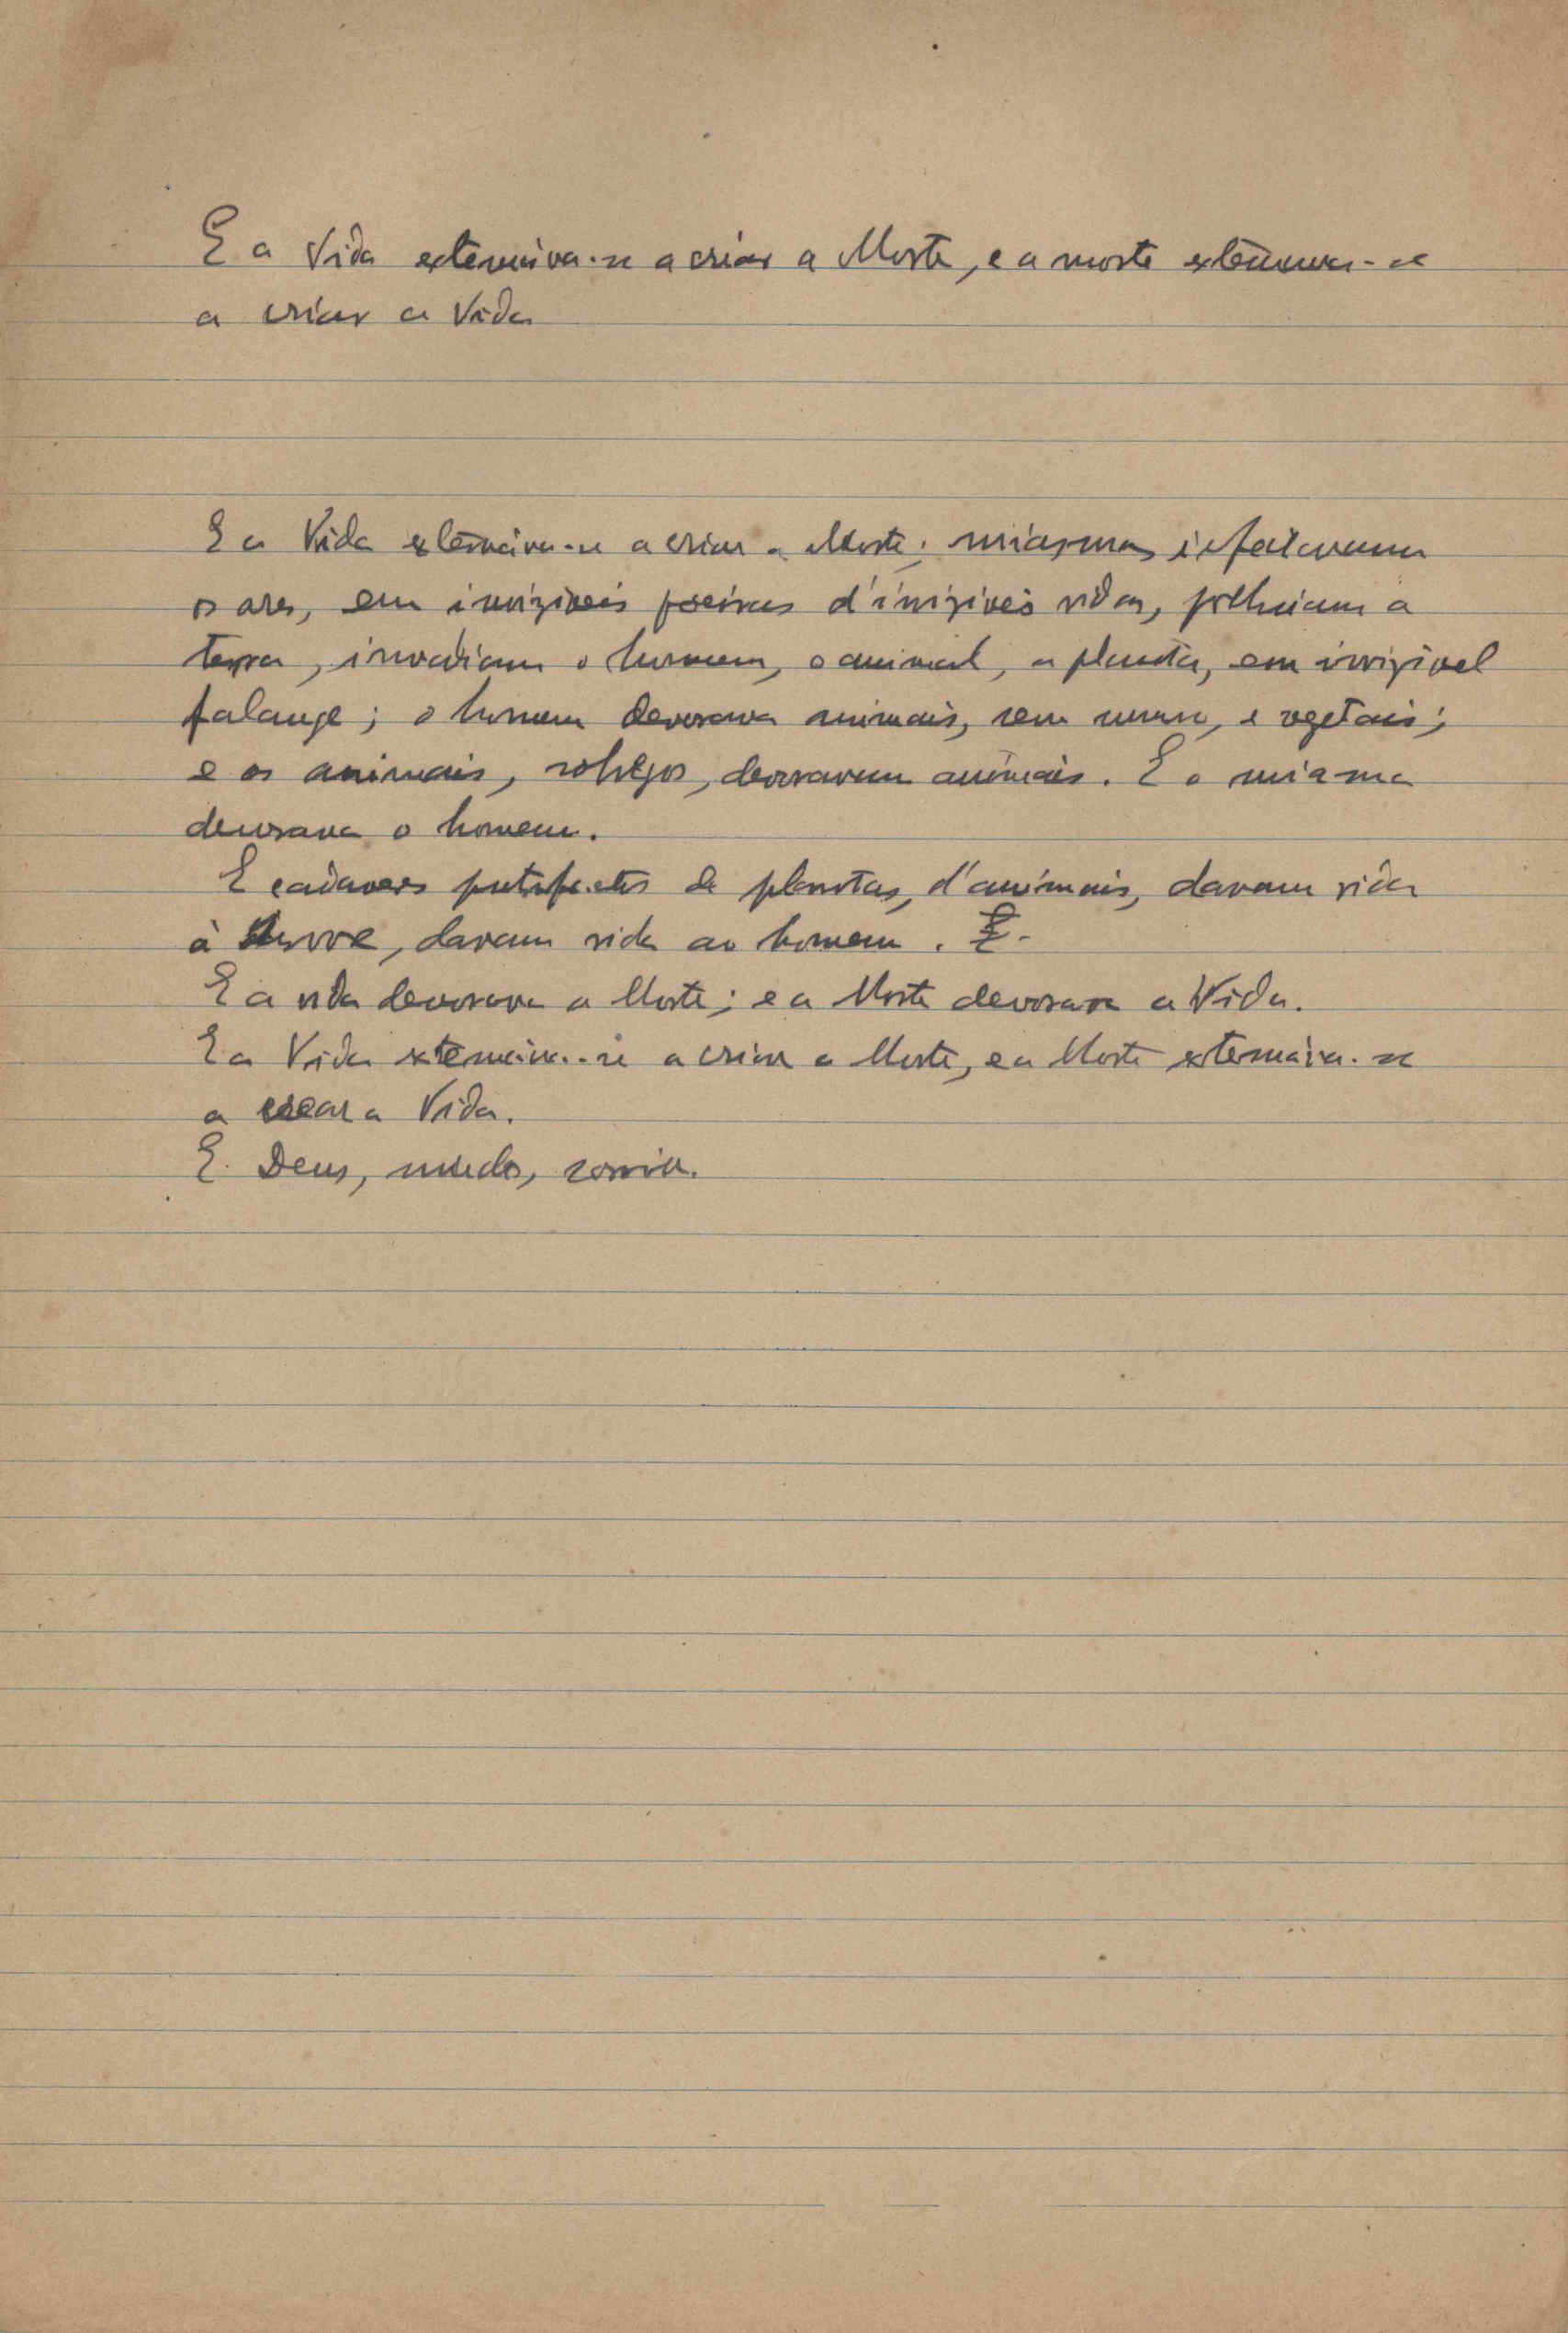 E a Vida extenuáva-se a criar a Morte, e a morte extenuava-se
a criar a Vida
E a Vida extenuáva-se a criar a Morte; miasmas infectavam
os ares, em invizíveis poeiras d'invizíveis vidas, polluiam a
terra, invadiam o homem, o animal, a planta, em invizivel
falange; o homem devorava animais, sem numero, e vegetais;
e os animais, sofregos, devoravam animais. E o miasma
devorava o homem.
E cadaveres putrefactos de plantas, d'animais, davam vida
à arvore, davam vida ao homem.
E a vida devorava a Morte; e a Morte devorava a Vida.
E a Vida extenuáva-se a criar a Morte, e a Morte extenuáva-se
a crear a Vida.
E Deus, mudo, sorria.